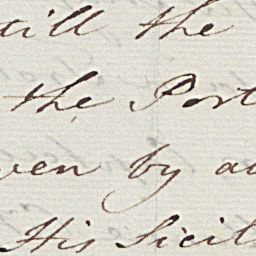 till the
the Port
ven by a
His Sicil